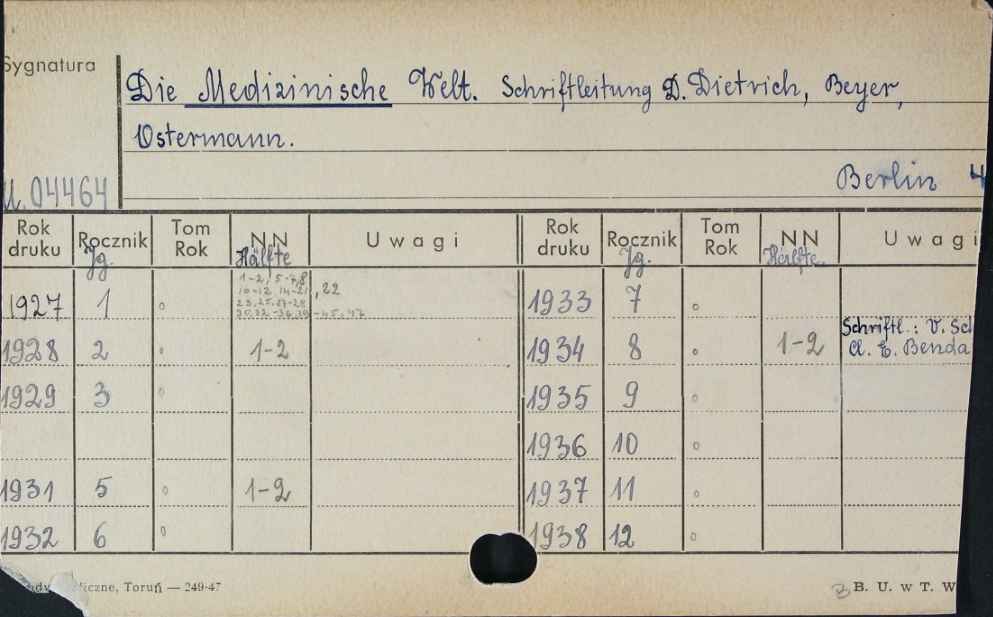 Sygnatura
Die Medizinische Welt. Schriftleitung D. Dietrich, Beyer,
Ostermann.
Berlin 4
U. 04464
Rok druku Rocznik Tom Rok NN Uwagi Rok druku Rocznik Tom Rok NN Uwagi
Jg. Hälfte Jg. Hälfte
1-2, 5-7,8
10-12, 14-21, 22
1927 1 1933 7
Schriftl.: V. Sch
1928 2 1-2 1934 8 1-2 A. E. Benda
1929 3 1935 9
1936 10
1931 5 1-2 1937 11
1932 6 1938 12
Toruń — 249-47
B. U. w T. W